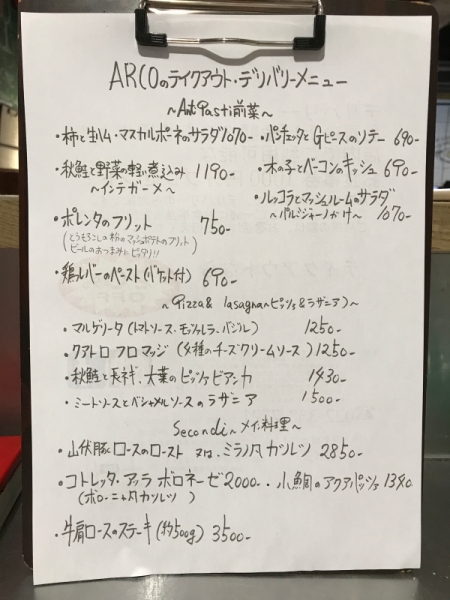 ARCOのテイクアウト・デリバリーメニュー
～AntiPasti前菜～
・柿と生ハム・マスカルポーネのサラダ1070- ・パンチェッタとGピースのソテー 690-
・秋鮭と野菜の軽い煮込み 1190- ・木の子とベーコンのキッシュ 690-
～インテガーメ～ ・ルッコラとマッシュルームのサラダ
～パルミジャーノかけ～ 1070-
・ポレンタのフリット 750-
(とうもろこしの粉のマッシュポテトのフリット)
ビールのおつまみにピッタリ!!
・鶏レバーのペースト(バケット付) 690-
～Pizza & lasagna～ピッツァ&ラザニア)～
・マルゲリータ(トマトソース、モッツァレラ、バジル) 1250-
・クアトロフロマッジ(4種のチーズクリームソース) 1250-
・秋鮭と長ネギ、大葉のピッツァビアンカ 1430-
・ミートソースとベシャメルソースのラザニア 1500-
Secondi～メイン料理～
・山伏豚ロースのロースト 又は、ミラノ風カツレツ 2850-
・コトレッタ・アッラ ボロネーゼ2000- ・小鯛のアクアパッツァ1340-
(ボローニャ風カツレツ)
・牛肩ロースのステーキ(約500g) 3500-